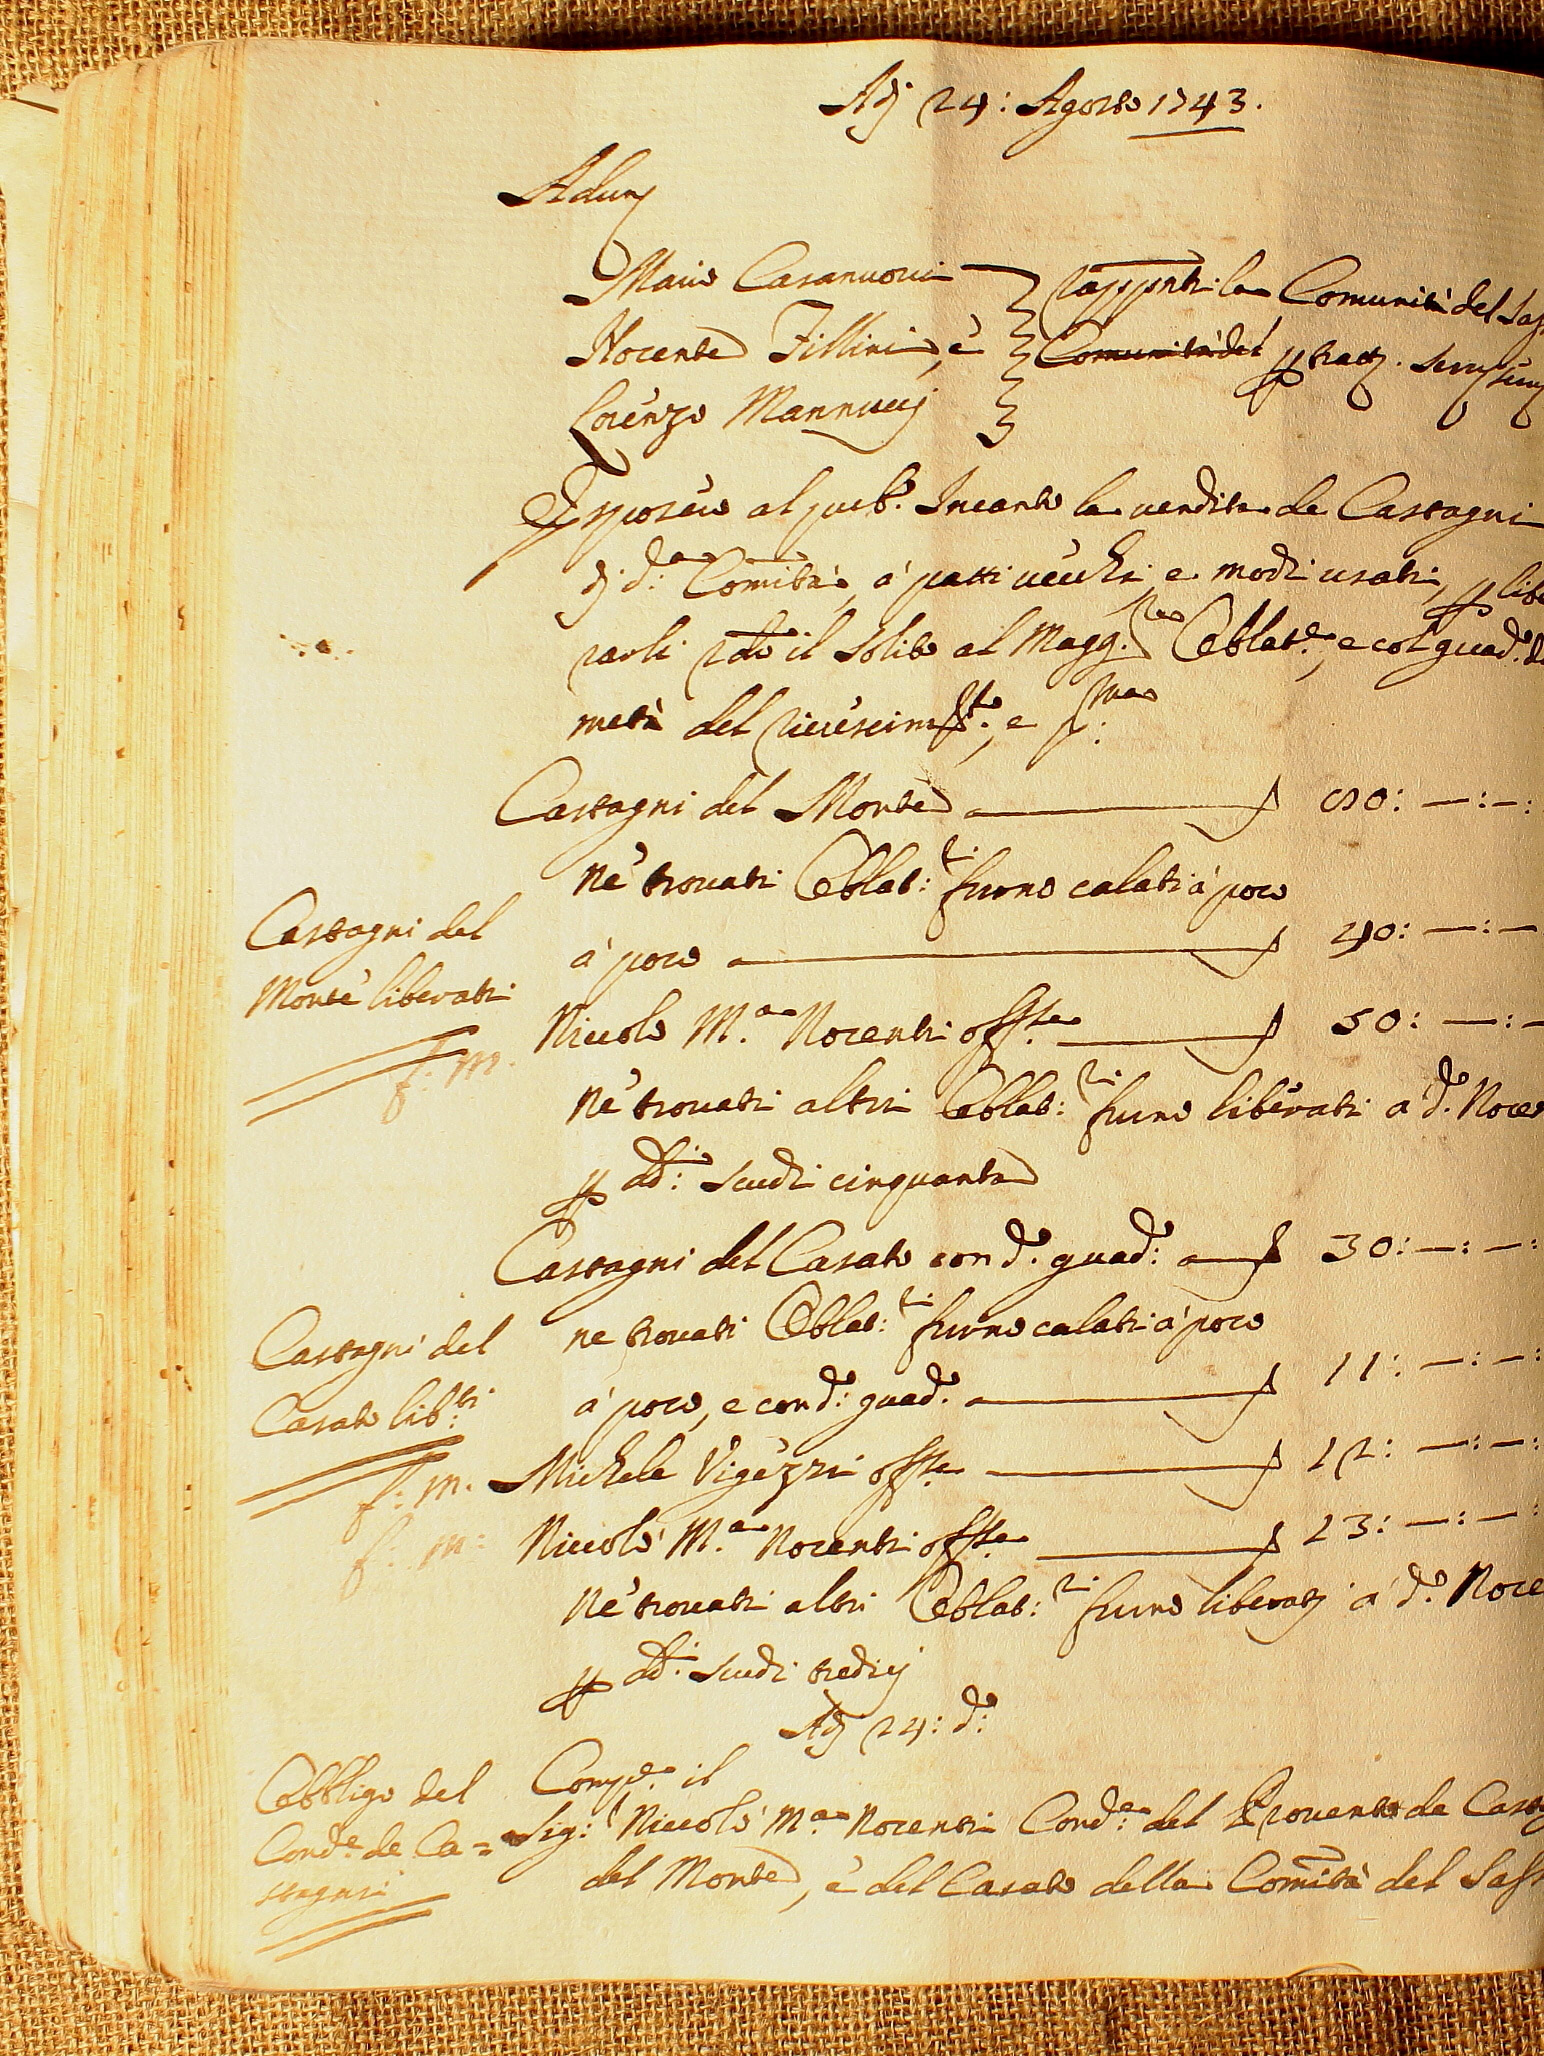 Adj 24: Agosto 1743.
Adun
Mario Casanuovi
Nocente Fillini, è
Lorenzo Mannucij
rapppnti la Comunità del Sass
Comunità del
Esposero al pub.o Incanto la vendita de Castagni
dj d.a Comità, à patti vecchi, e modi usati, p libe
rarli il solito al Magg.re Oblat.e, e col guad.o d
metà del ricrescim.to, e
Castagni del Monte 80: —:—:
Nè trovati Oblat:ri furno calati à poco
Castagni del
Monte liberati
f: m.
à poco 40: —:—
Niccolò M.a Nocenti offse 50: —:—
Nè trovati altri Oblat:ri furno liberati a d.o Nocen
p dd:i scudi cinquanta
Castagni del Casato con d.o guad:o 30:—:—:
Castagni del
Casato lib:ti
f: m.
f: m:
ne trovati Oblat:ri furno calati à poco
à poco, e con d:o guad.o 11: —:—:
Michele Vigezzi offse 12: —:—:
Niccolò M.a Nocenti offse 13: —:—:
Nè trovati altri Oblat:ri furno liberatj à d.o Noce
p dd:i scudi tredicj
Adj 24: d:o
Obbligo del
Cond.e de Ca=
stagni
Comp.e il
Sig:r Niccolò M.a Nocenti Cond:e del Provento de Cast
del Monte, è del Casato della Comità del Sass